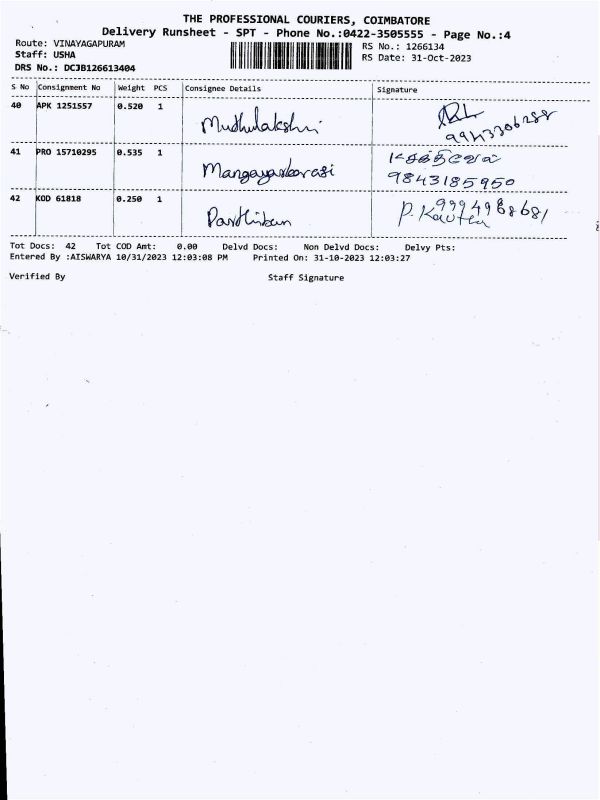 THE PROFESSIONAL COURIERS, COIMBATORE
Delivery Runsheet - SPT - Phone No.:0422-3505555 - Page No.:4
Route: VINAYAGAPURAM
Staff: USHA
DRS No.: DCJB126613404
RS No.: 1266134
RS Date: 31-Oct-2023
S No Consignment No Weight PCS Consignee Details Signature
40 APK 1251557 0.520 1 Muthulakshmi
9943306288
41 PRO 15710295 0.535 1 Mangayarkarasi
9843185950
42 KOD 61818 0.250 1 Parthiban
9994968681
Tot Docs: 42 Tot COD Amt: 0.00 Delvd Docs: Non Delvd Docs: Delvy Pts:
Entered By :AISWARYA 10/31/2023 12:03:08 PM Printed On: 31-10-2023 12:03:27
Verified By Staff Signature